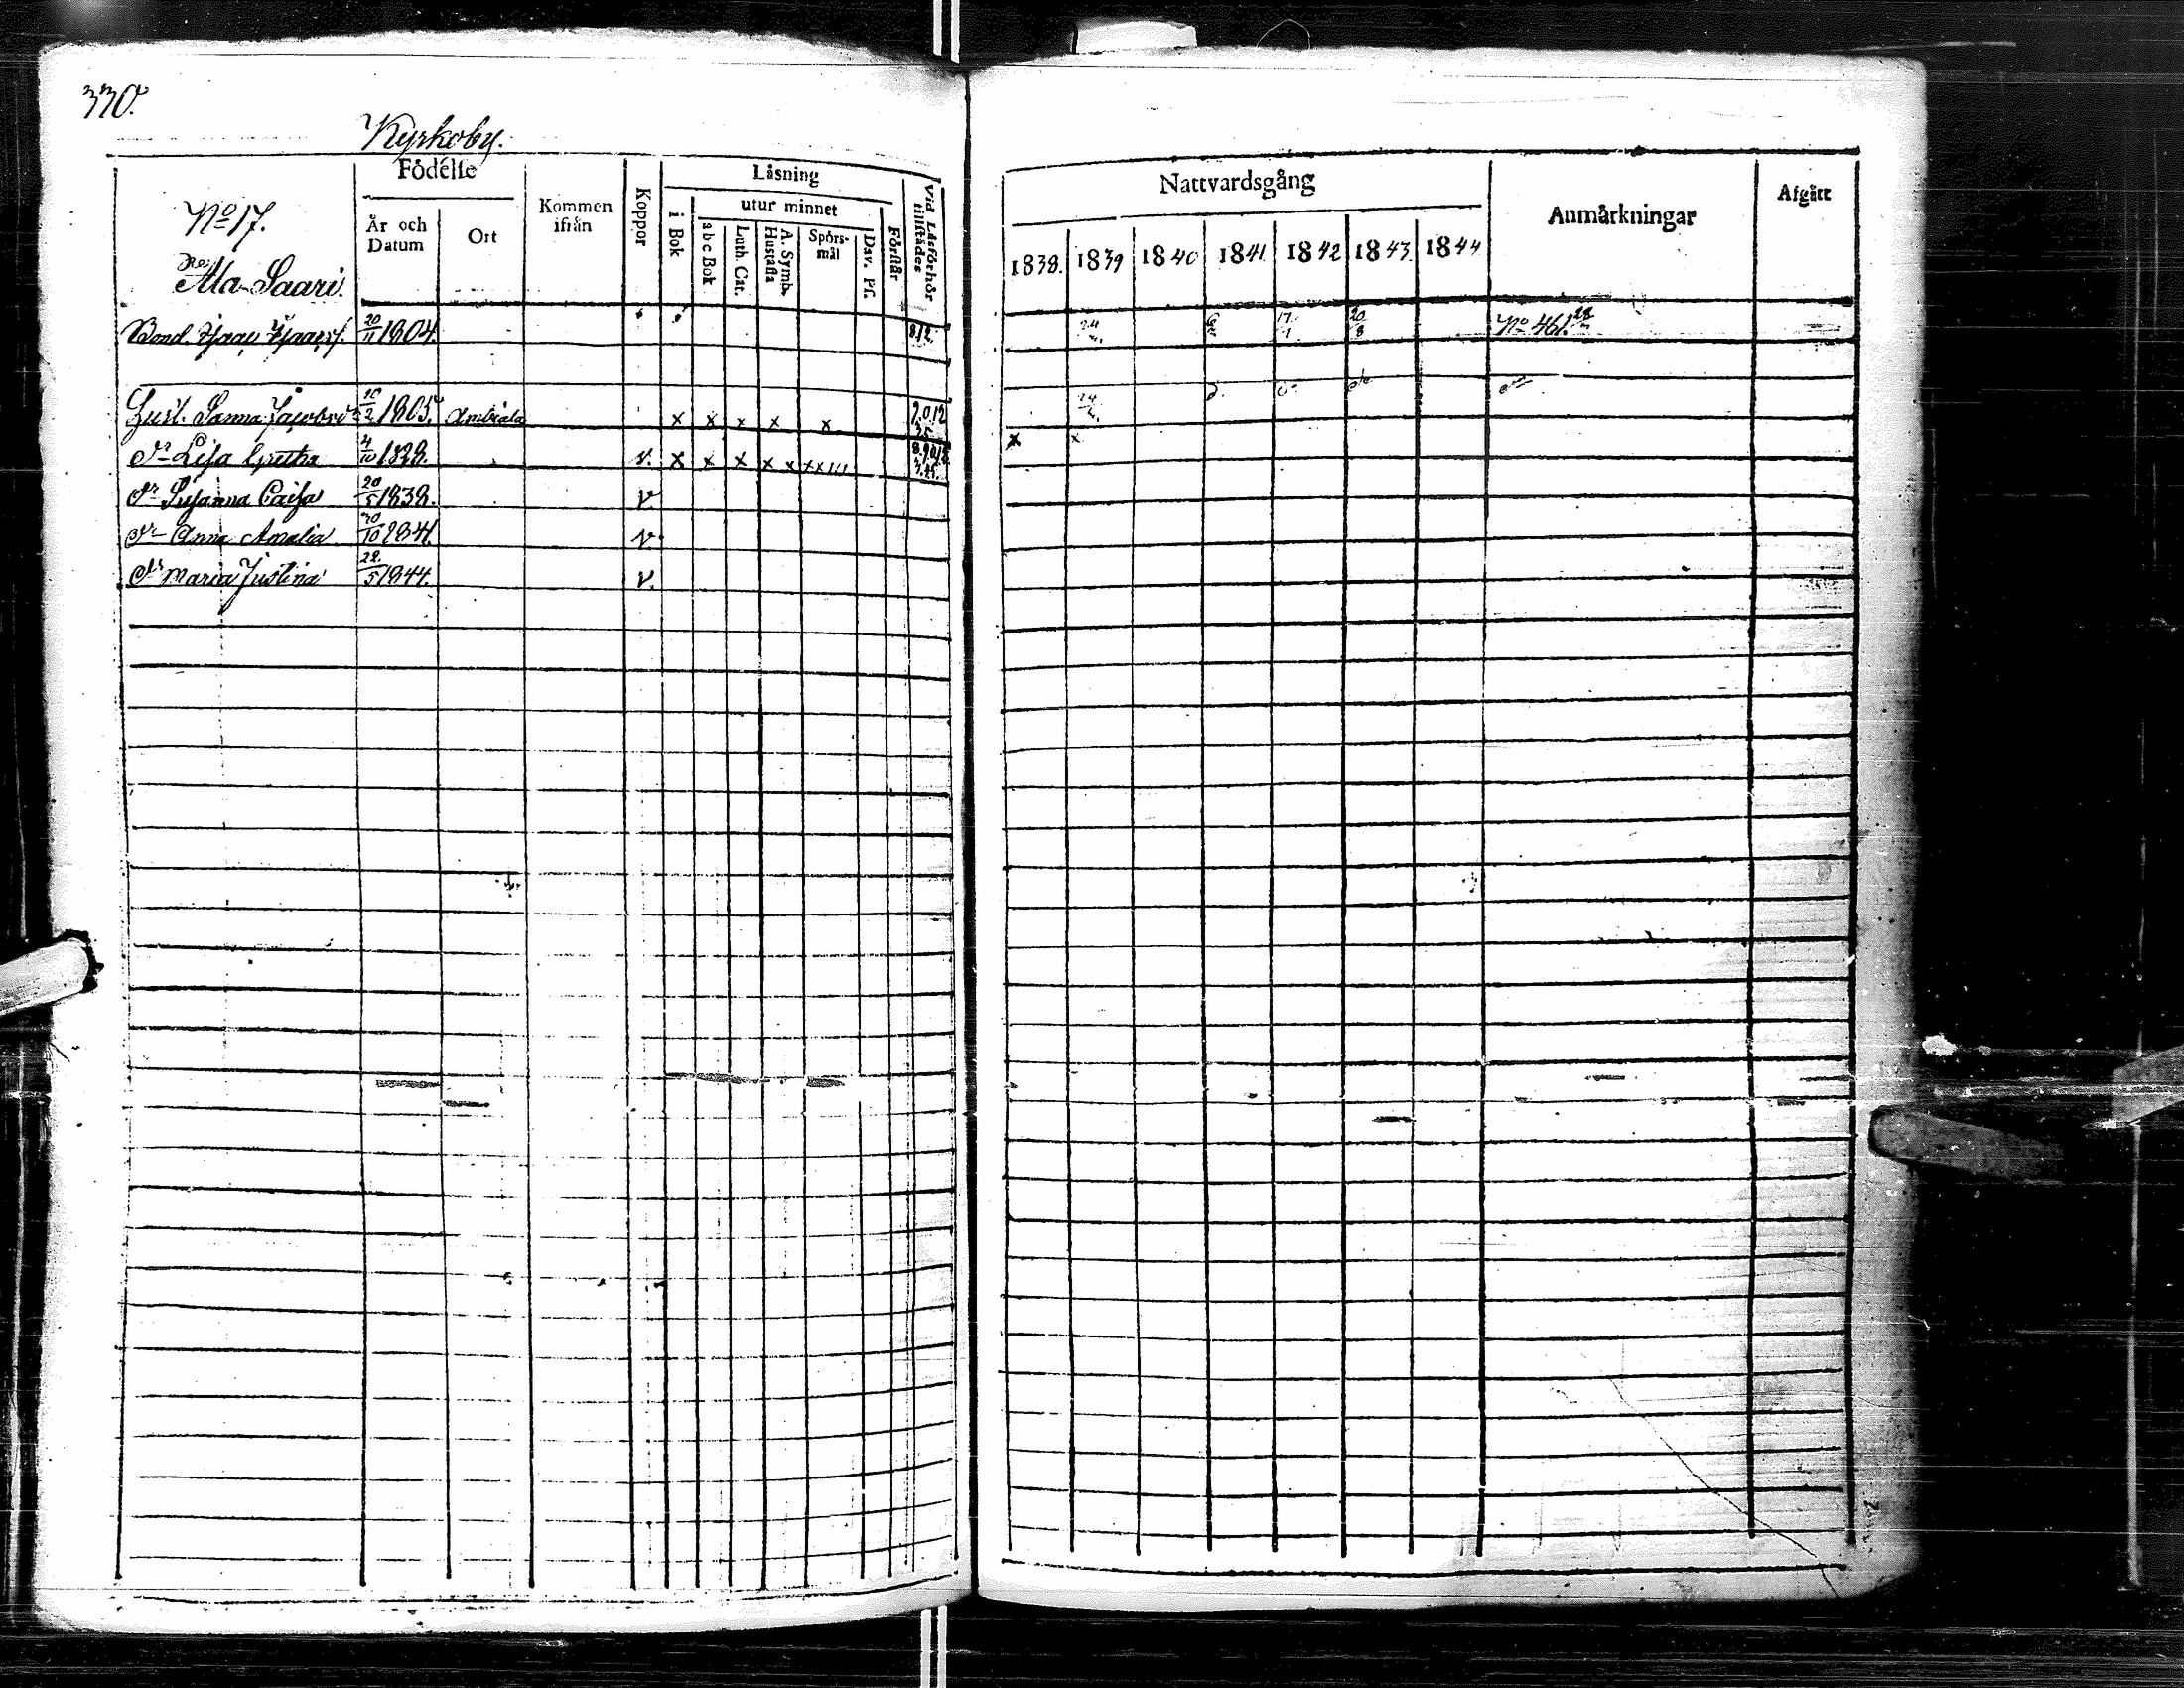 330.
Kyrkoby.
No 17.
Ala-Saari.
Födelse
År och Datum
Ort
Kommen ifrån
Koppor
Läsning
i Bok
utur minnet
abc Bok
Luth. Cat.
A. Symb. Hustafla
Spörsmål
Dav. Ps.
Förstår
Vid Läsförhör tillstädes
Nattvardsgång
1838. 1839 1840 1841 1842 1843 1844
Anmärkningar
Afgått
Bond. Isaac Isaacss. 20/11 1804. 8/2 24 17/1 20/8 No 461.
Hust. Sanna Jacobsd 10/2 1805. Ambiala x x x x x 24
Dr Lisa Greetha 4/10 1828. v. x x x x x x x x x
Dr Susanna Caisa 20/5 1838. v
Dr Anna Amalia 30/10 1841 v.
Dr Maria Justina 22/5 1844. v.